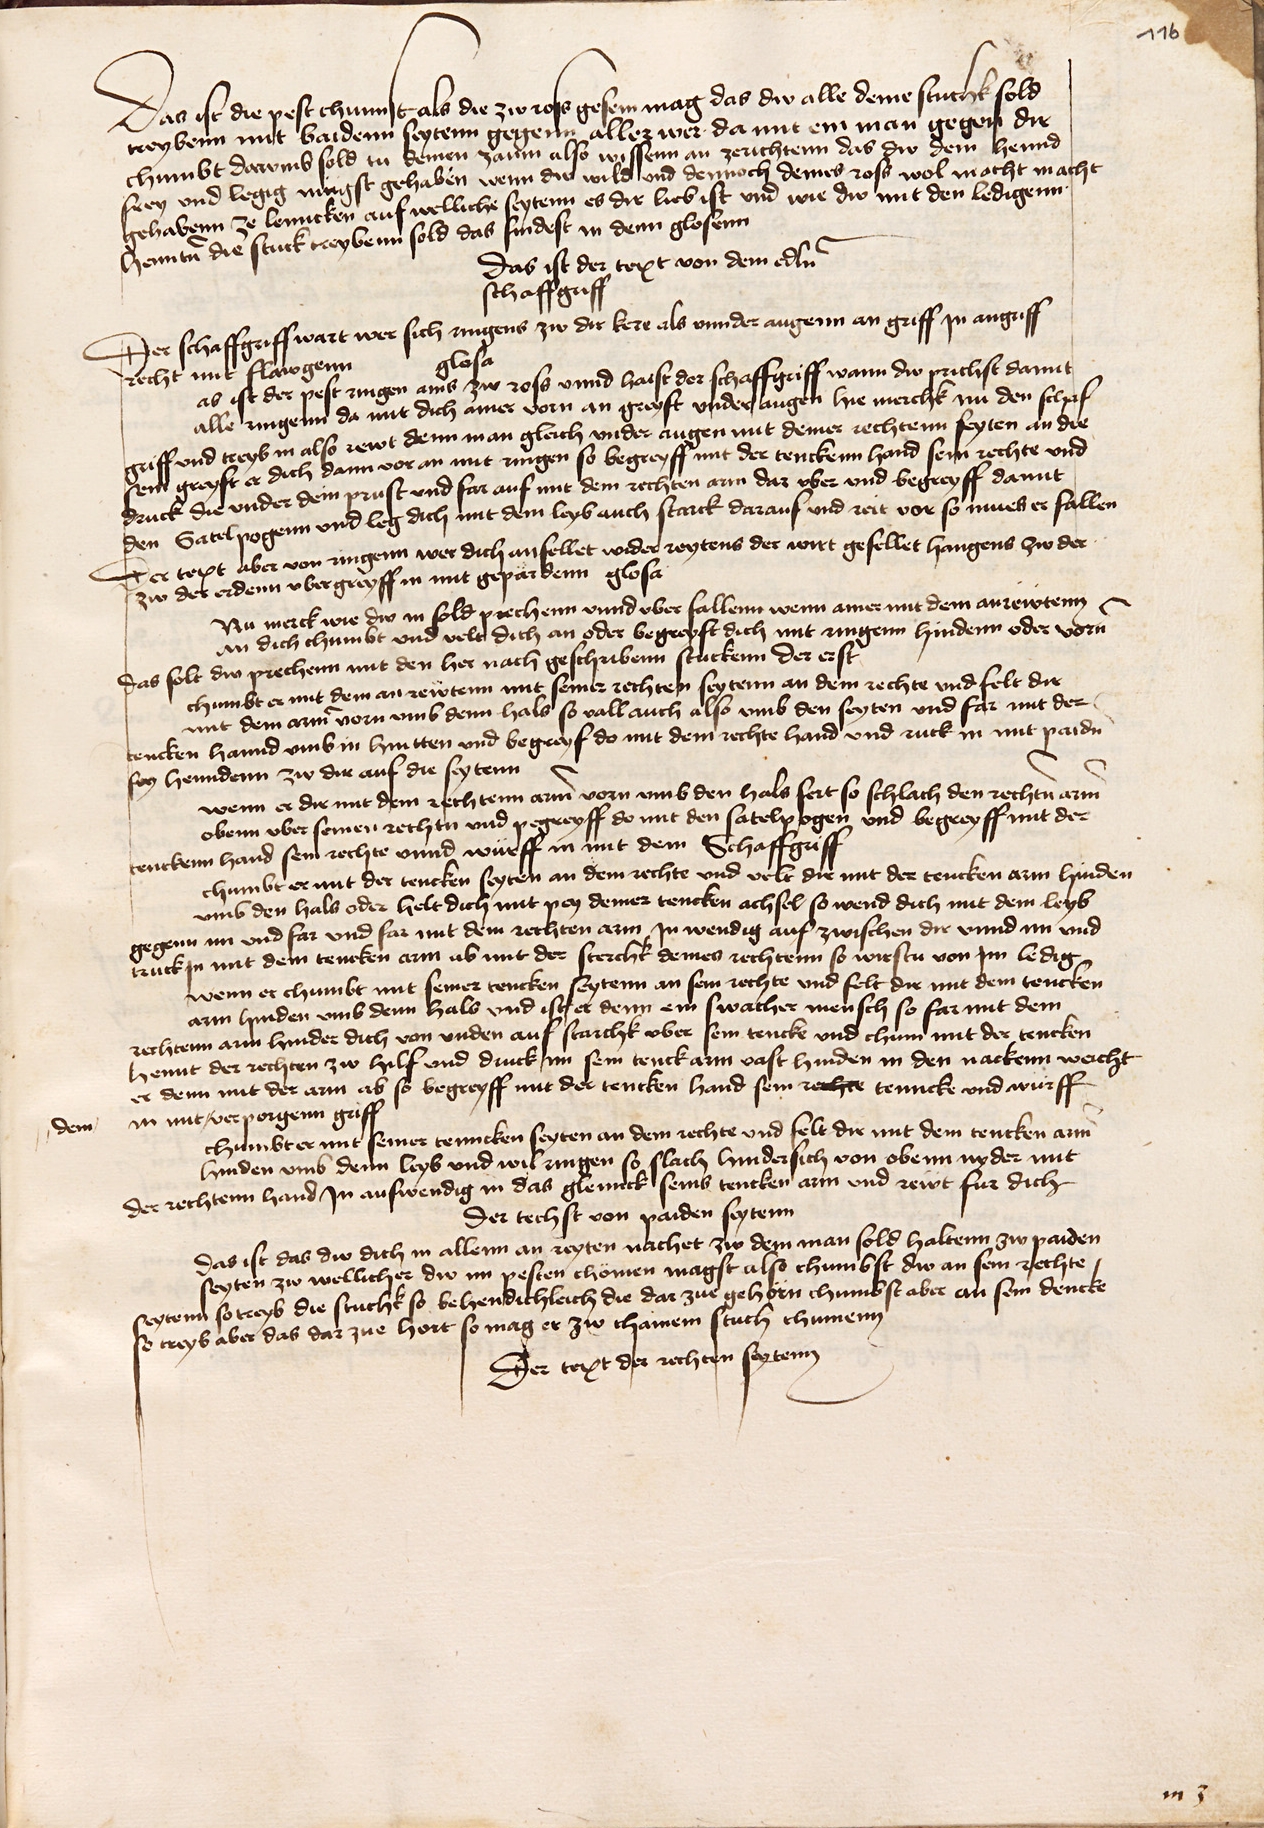 116
Das ist die pest chunnst als die zw ross gesein mag das dw alle deine stuchk sold
treybenn mit baidenn seytenn gegenn aller wer da mit ein man gegen dir
chumbt darumb sold tu deinen zaum also wissenn an zerichtenn das dw dein hennd
frey und legig mugst gehaben wenn du wild und dennoch deines ross wol macht macht
gehabenn ze lenncken auf welliche seytenn es dir lieb ist und wie dw mit den ledigenn
henntn̄ die stuck treybenn sold das findest in denn glosenn
Das ist der text von dem edln̄
schaffgriff
Der schaffgriff wart wer sich ringens zw dir kere als unnder augenn an griff In angriff
recht mit flawgenn glosa
as ist der pest ringen ains zw ross unnd haist der schaffgriff wann dw prichst damit
alle ringenn da mit dich ainer vorn an greyft under augen hie merchk nu den schaf
griff und treyb in also rewt denn man gleich under augen mit deiner rechtenn seyten an die
sein greyft er dich dann vor an mit ringen so begreyff mit der tenckenn hand sein rechte und
druck die under dein prust und far auf mit dem rechten arm dar uber und begreyff damit
den Satel pogenn und leg dich mit dem leyb auch starck darauf und reit vor so mues er fallen
Der text aber von ringenn wer dich anfellet wider reytens der wirt gefellet hangens zw der
zw der erdenn ubergreyff in mit gepardenn glosa
Nu merck wie dw in sold prechenn unnd uber fallenn wenn ainer mit dem anrewtenn
an dich chumbt und velt dich an oder begreyft dich mit ringenn hindenn oder vorn̄
das solt dw prechenn mit den her nach geschribenn stuckenn Der erst
chumbt er mit dem an rewtenn mit seiner rechten seytenn an dein rechte und felt dir
mit dem arm̄ vorn umb denn hals so vall auch also umb den seyten und far mit der
tencken hannd umb in hintten und begreyf do mit dein rechte hand und ruck in mit paidn̄
henndenn zw dir auf die seytenn
wenn er dir mit dem rechtenn arm̄ vorn umb den hals fert so schlach den rechtn̄ arm̄
obenn uber seinen rechtn̄ und pegreyff do mit den satelpogen und begreyff mit der
tenckenn hand sein rechte unnd würff in mit dem Schaffgriff
chumbt er mit der tencken seyten an dein rechte und velt dir mit der tencken arm hinden
umb den hals oder helt dich mit pey deiner tencken achsel so wend dich mit dem leyb
gegenn im und far und far mit dem rechten arm In wendig auf zwischen dir unnd im und
truck In mit dem tencken arm ab mit der sterchk deines rechtenn so wirstu von Im ledig
wenn er chumbt mit seiner tencken seytenn an sein rechte und felt dir mit dem tencken
arm hinden umb denn hals und ist er denn ein swacher mensch so far mit dem
rechtenn arm hinder dich von unden auf starchk uber sein tencke und chum mit der tencken
hennt der rechten zw hilf und druck im sein tenck arm vast hinden in den nackenn weicht
er denn mit der arm ab so begreyff mit der tencken hand sein rechte tenncke und würff
dem in mit verporgenn griff
chumbt er mit seiner tenncken seyten an dein rechte und felt dir mit dem tencken arm̄
hinden umb denn leyb und wil ringen so slach hindersich von obenn nyder mit
der rechtenn hand In auswendig in das glennck seins tencken arm und rewt fur dich
Der techst von paiden seytenn
Das ist das dw dich in allenn an reyten nachet zw dem man sold haltenn zw paiden
seyten zw wellicher dw im pesten chömen magst also chumbst dw an sein rechte
seytenn so treyb die stuchk so behendichleich die dar zue gehörn chumbst aber an sein dencke
so treyb aber das dar zue hort so mag er zw chainem stuch chumenn
Der text der rechten seytenn
m 3